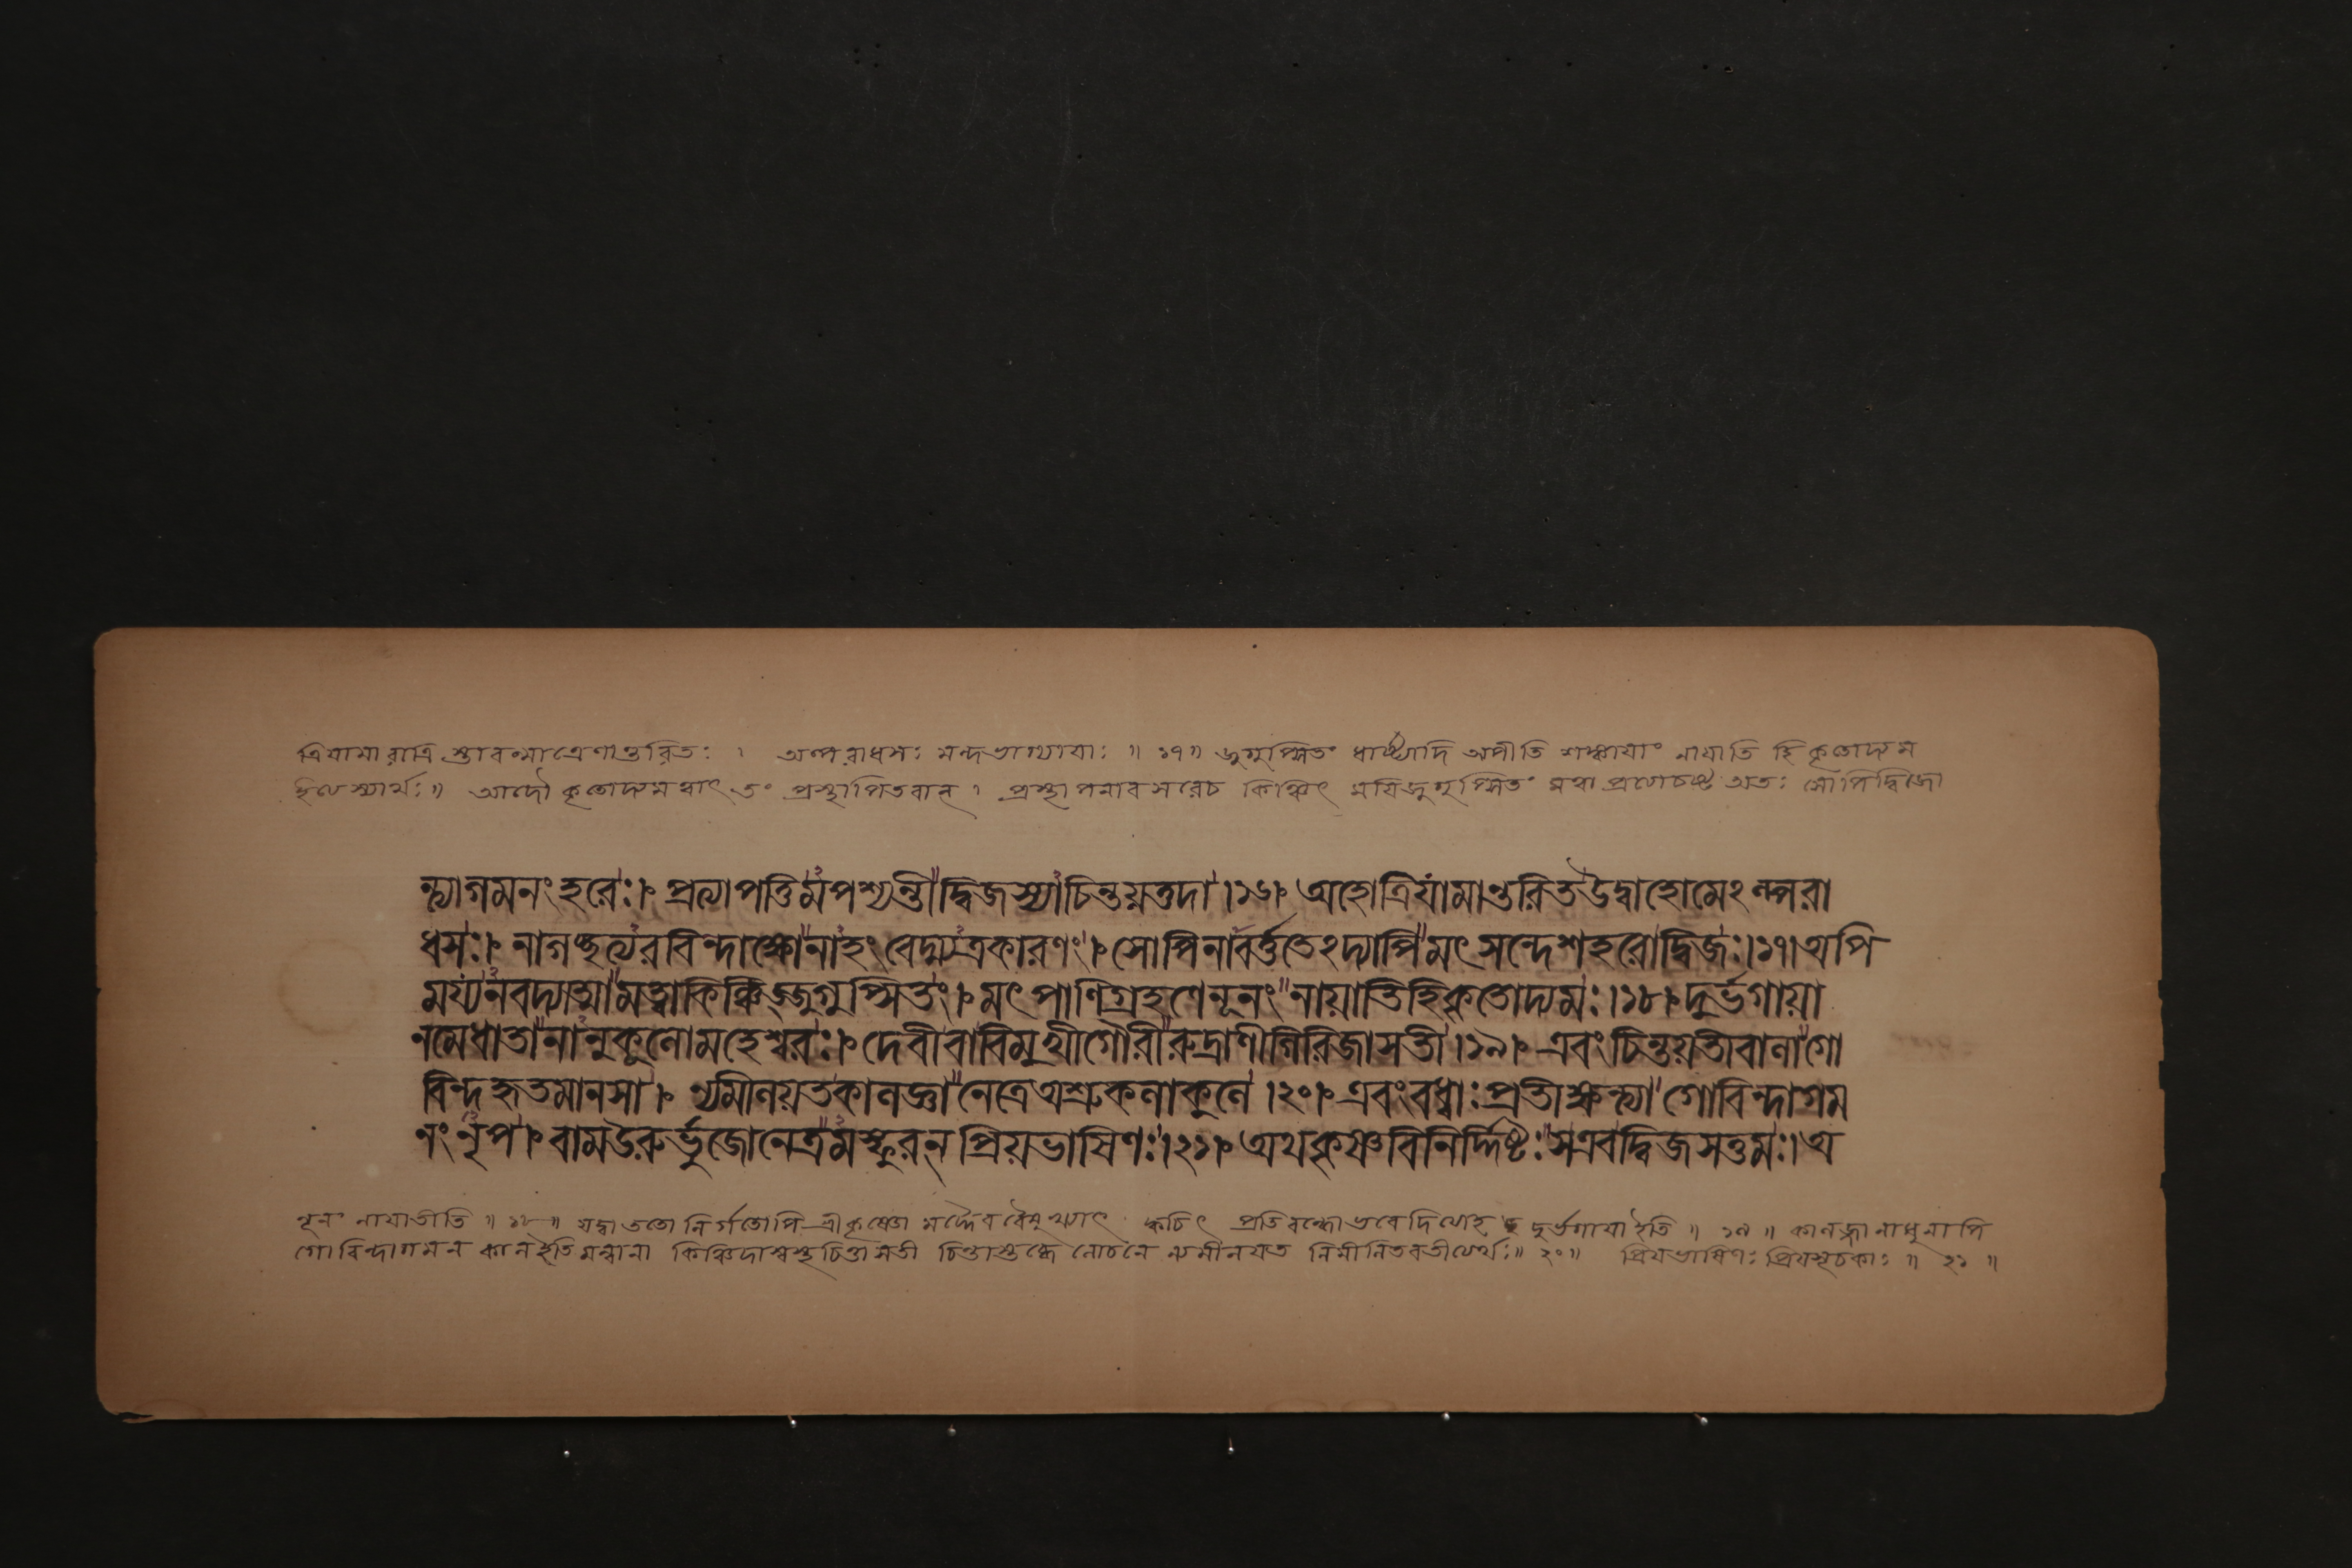 ত্রিযামা রাত্রি স্তাবন্মাত্রেণান্তরিতঃ । অল্পরাধসঃ মন্দভাগ্যাযাঃ ॥ ১৭ ॥ জুগুপ্সিতং ধার্ষ্ট্যাদি অপীতি শঙ্কাযাং নাযাতি হি কৃতোদ্যম
ইত্যস্যার্থঃ ॥ আদৌ কৃতোদ্যমত্বাৎ তং প্রস্থাপিতবান্ । প্রস্থাপনাবসরেচ কিঞ্চিৎ মযিজুগুপ্সিতং মত্বা অতঃ সোপিদ্বিজো
ন্ত্যাগমনং হরেঃ । প্রত্যাপত্তিমপশ্যন্তী দ্বিজস্যাচিন্তয়ত্তদা । ১৬ । অহোত্রিযামান্তরিতউদ্বাহোমেঽল্পরা
ধসঃ । নাগচ্ছত্যরবিন্দাক্ষোনাহং বেদ্ম্যত্রকারণং । সোপিনাবর্ত্ততেঽদ্যাপি মৎ সন্দেশহরোদ্বিজঃ । ১৭ । অপি
ময্যনবদ্যাত্মামত্বাকিঞ্চিজ্জুগুপ্সিতং । মৎ পাণিগ্রহণেনূনং নায়াতিহিকৃতোদ্যমঃ । ১৮ । দুর্ভগায়া
নমেধাতানানুকূলোমহেশ্বরঃ । দেবীবাবিমুখীগৌরীরুদ্রাণীগিরিজাসতী । ১৯ । এবং চিন্তয়তীবালাগো
বিন্দহৃতমানসা । ন্যমীলয়তকালজ্ঞানেত্রেঅশ্রুকলাকুলে । ২০ । এবংবধ্বাঃ প্রতীক্ষন্ত্যাগোবিন্দাগম
নং নৃপ । বামউরুর্ভুজোনেত্রমস্ফুরন্ প্রিয়ভাষিণঃ । ২১ । অথকৃষ্ণবিনির্দ্দিষ্টঃ সএবদ্বিজসত্তমঃ । অ
নূনং নাযাতীতি ॥ ১৮ ॥ যদ্বা ততো নির্গতোপি শ্রীকৃষ্ণো মদ্দৈববৈমুখ্যাৎ ক্বচিৎ প্রতিবন্ধোভবেদিত্যাহ দুর্ভগাযাইতি ॥ ১৯ ॥ কালজ্ঞানাধুনাপি
গোবিন্দাগমন কালইতিমন্বানা কিঞ্চিদাস্বস্থচিত্তাসতী চিন্তাশুব্ধে লোচনে ন্যমীলযত নিমীলিতবতীত্যর্থঃ ॥ ২০ ॥ প্রিযভাষিণঃ প্রিযসূচকাঃ ॥ ২১ ॥